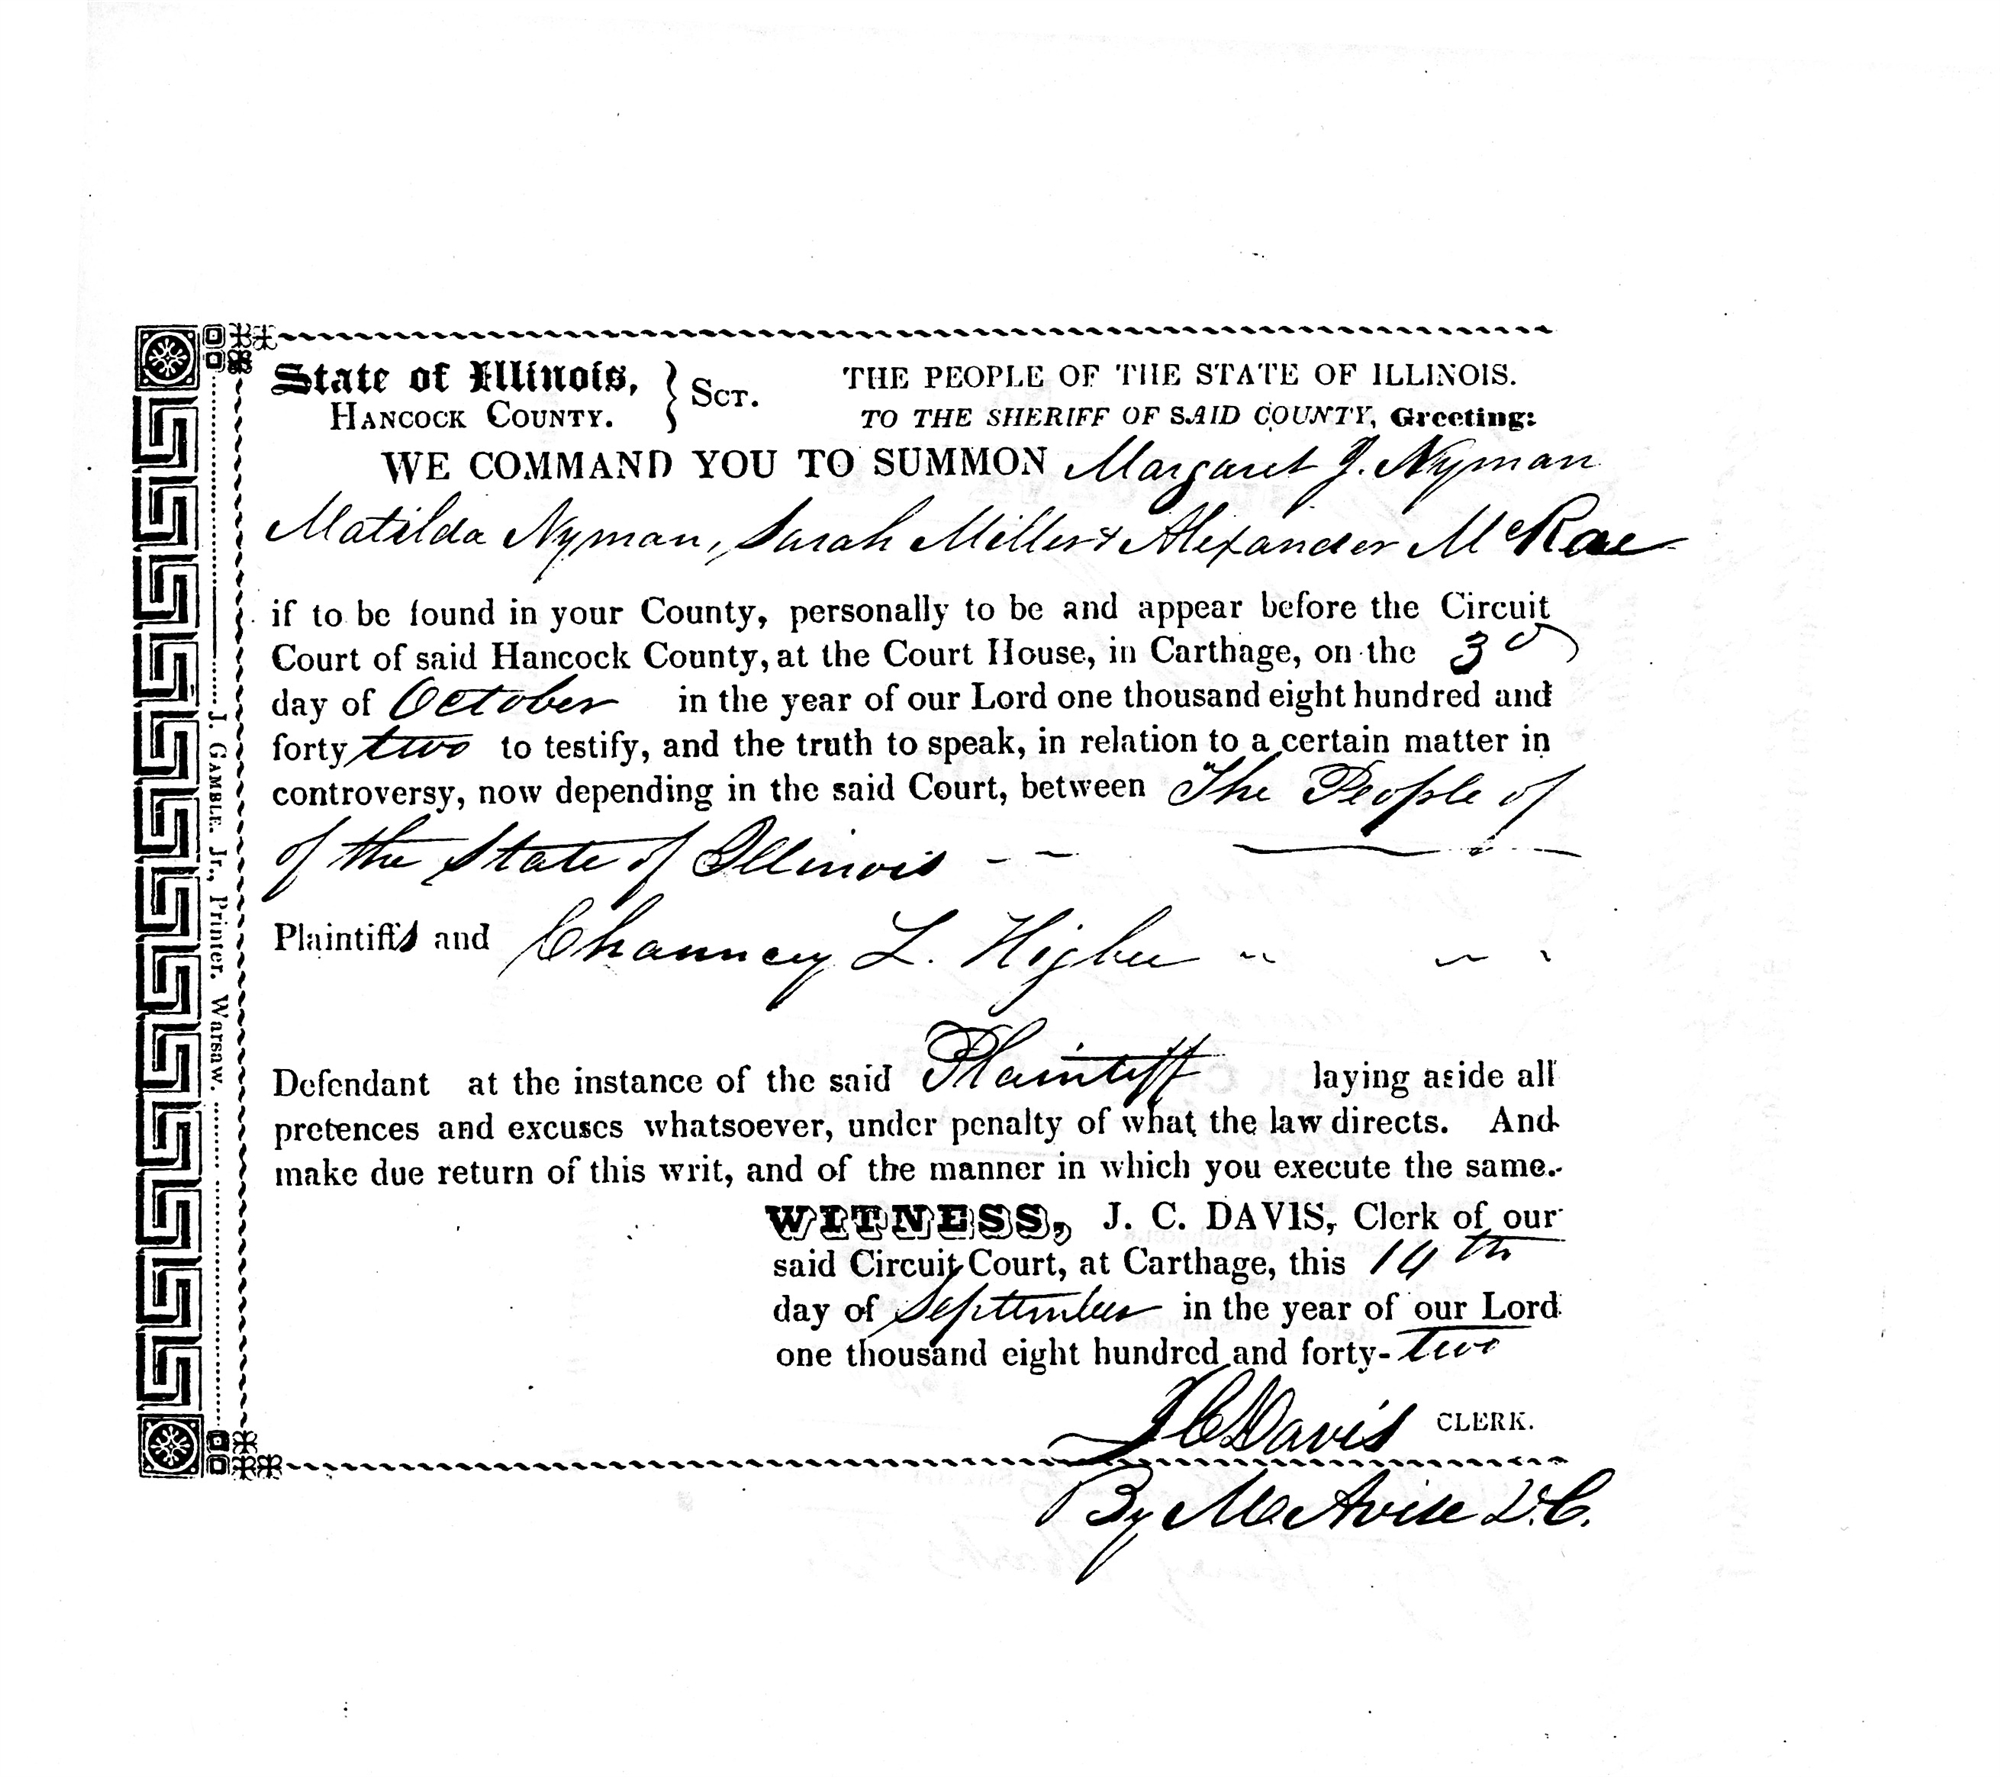 State of Illinois, } Sct. THE PEOPLE OF THE STATE OF ILLINOIS.
HANCOCK COUNTY. TO THE SHERIFF OF SAID COUNTY, Greeting:
WE COMMAND YOU TO SUMMON Margaret J. Nyman
Matilda Nyman, Sarah Miller & Alexander McRae
if to be found in your County, personally to be and appear before the Circuit
Court of said Hancock County, at the Court House, in Carthage, on the 3d
day of October in the year of our Lord one thousand eight hundred and
forty two to testify, and the truth to speak, in relation to a certain matter in
controversy, now depending in the said Court, between The People of
of the State of Illinois
Plaintiffs and Chauncey L. Higbee
Defendant at the instance of the said Plaintiff laying aside all
pretences and excuses whatsoever, under penalty of what the law directs. And
make due return of this writ, and of the manner in which you execute the same.
WITNESS, J. C. DAVIS, Clerk of our
said Circuit Court, at Carthage, this 14th
day of September in the year of our Lord
one thousand eight hundred and forty-two
J C Davis CLERK.
By M Avise D.C.
J. GAMBLE. Jr., Printer. Warsaw.